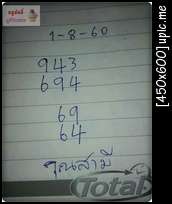 1-8-60
943
694
69
64
คุณสามี
Total
[450x600] upic.me